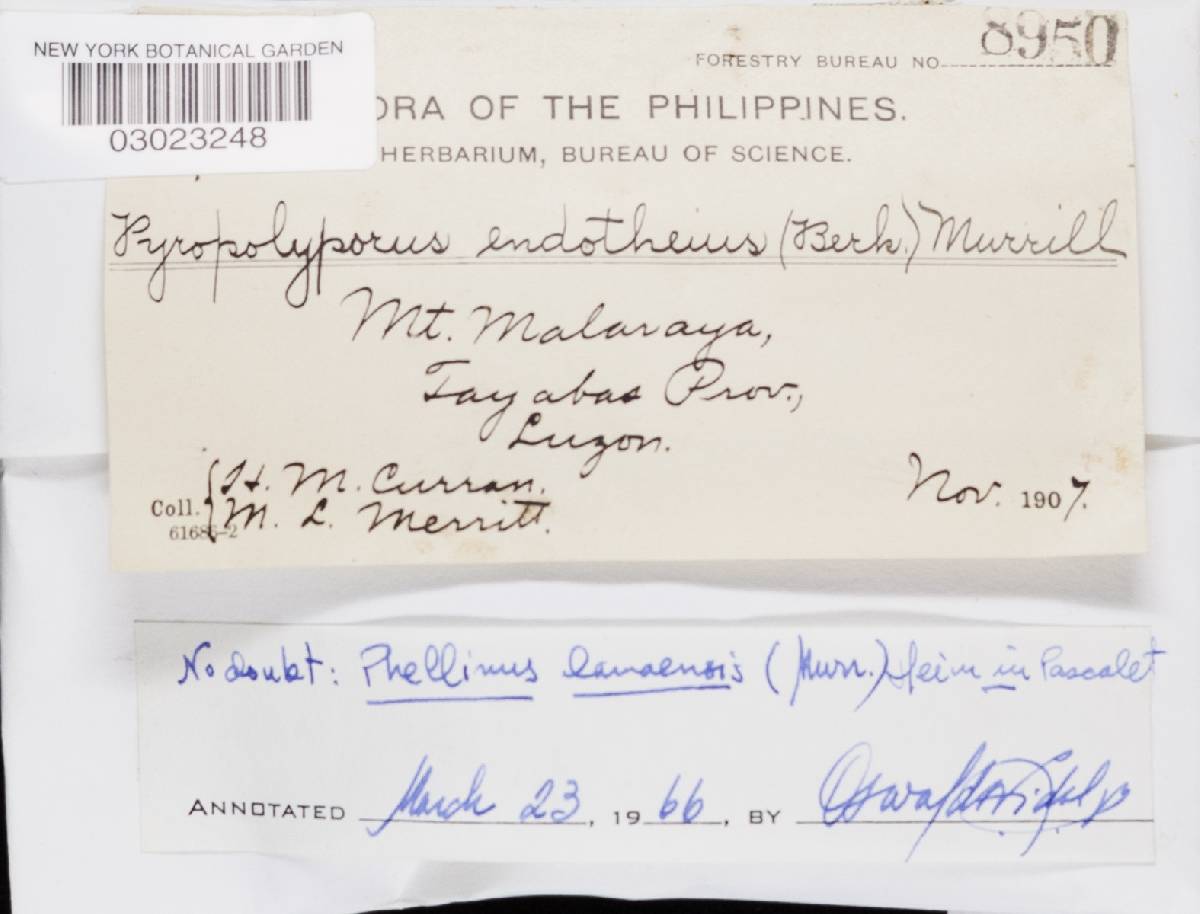 NEW YORK BOTANICAL GARDEN
03023248
FORESTRY BUREAU NO. 8950
ORA OF THE PHILIPPINES.
HERBARIUM, BUREAU OF SCIENCE.
Pyropolyporus endotheius (Berk.) Murrill
Mt. Malaraya,
Tayabas Prov.,
Luzon.
Coll. {H. M. Curran.
M. L. Merritt.
Nov. 1907.
61685-2
No doubt: Phellinus lamaensis (Murr.) Heim in Pascalet
ANNOTATED March 23, 1966, BY Oswaldo Fidalgo